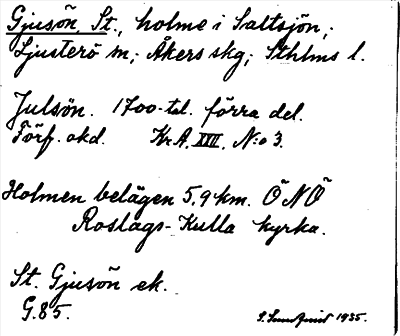 Gjusön, St., holme i Saltsjön;
Ljusterö sn; Åkers skg; Sthlms l.
Julsön. 1700-tal. förra del.
Förf. okd. Kr.A. XIII. N:o 3.
Holmen belägen 5,9 km. ÖNÖ
Roslags-Kulla kyrka.
St. Gjusön ek.
G.85.
S. Sundqvist 1935.